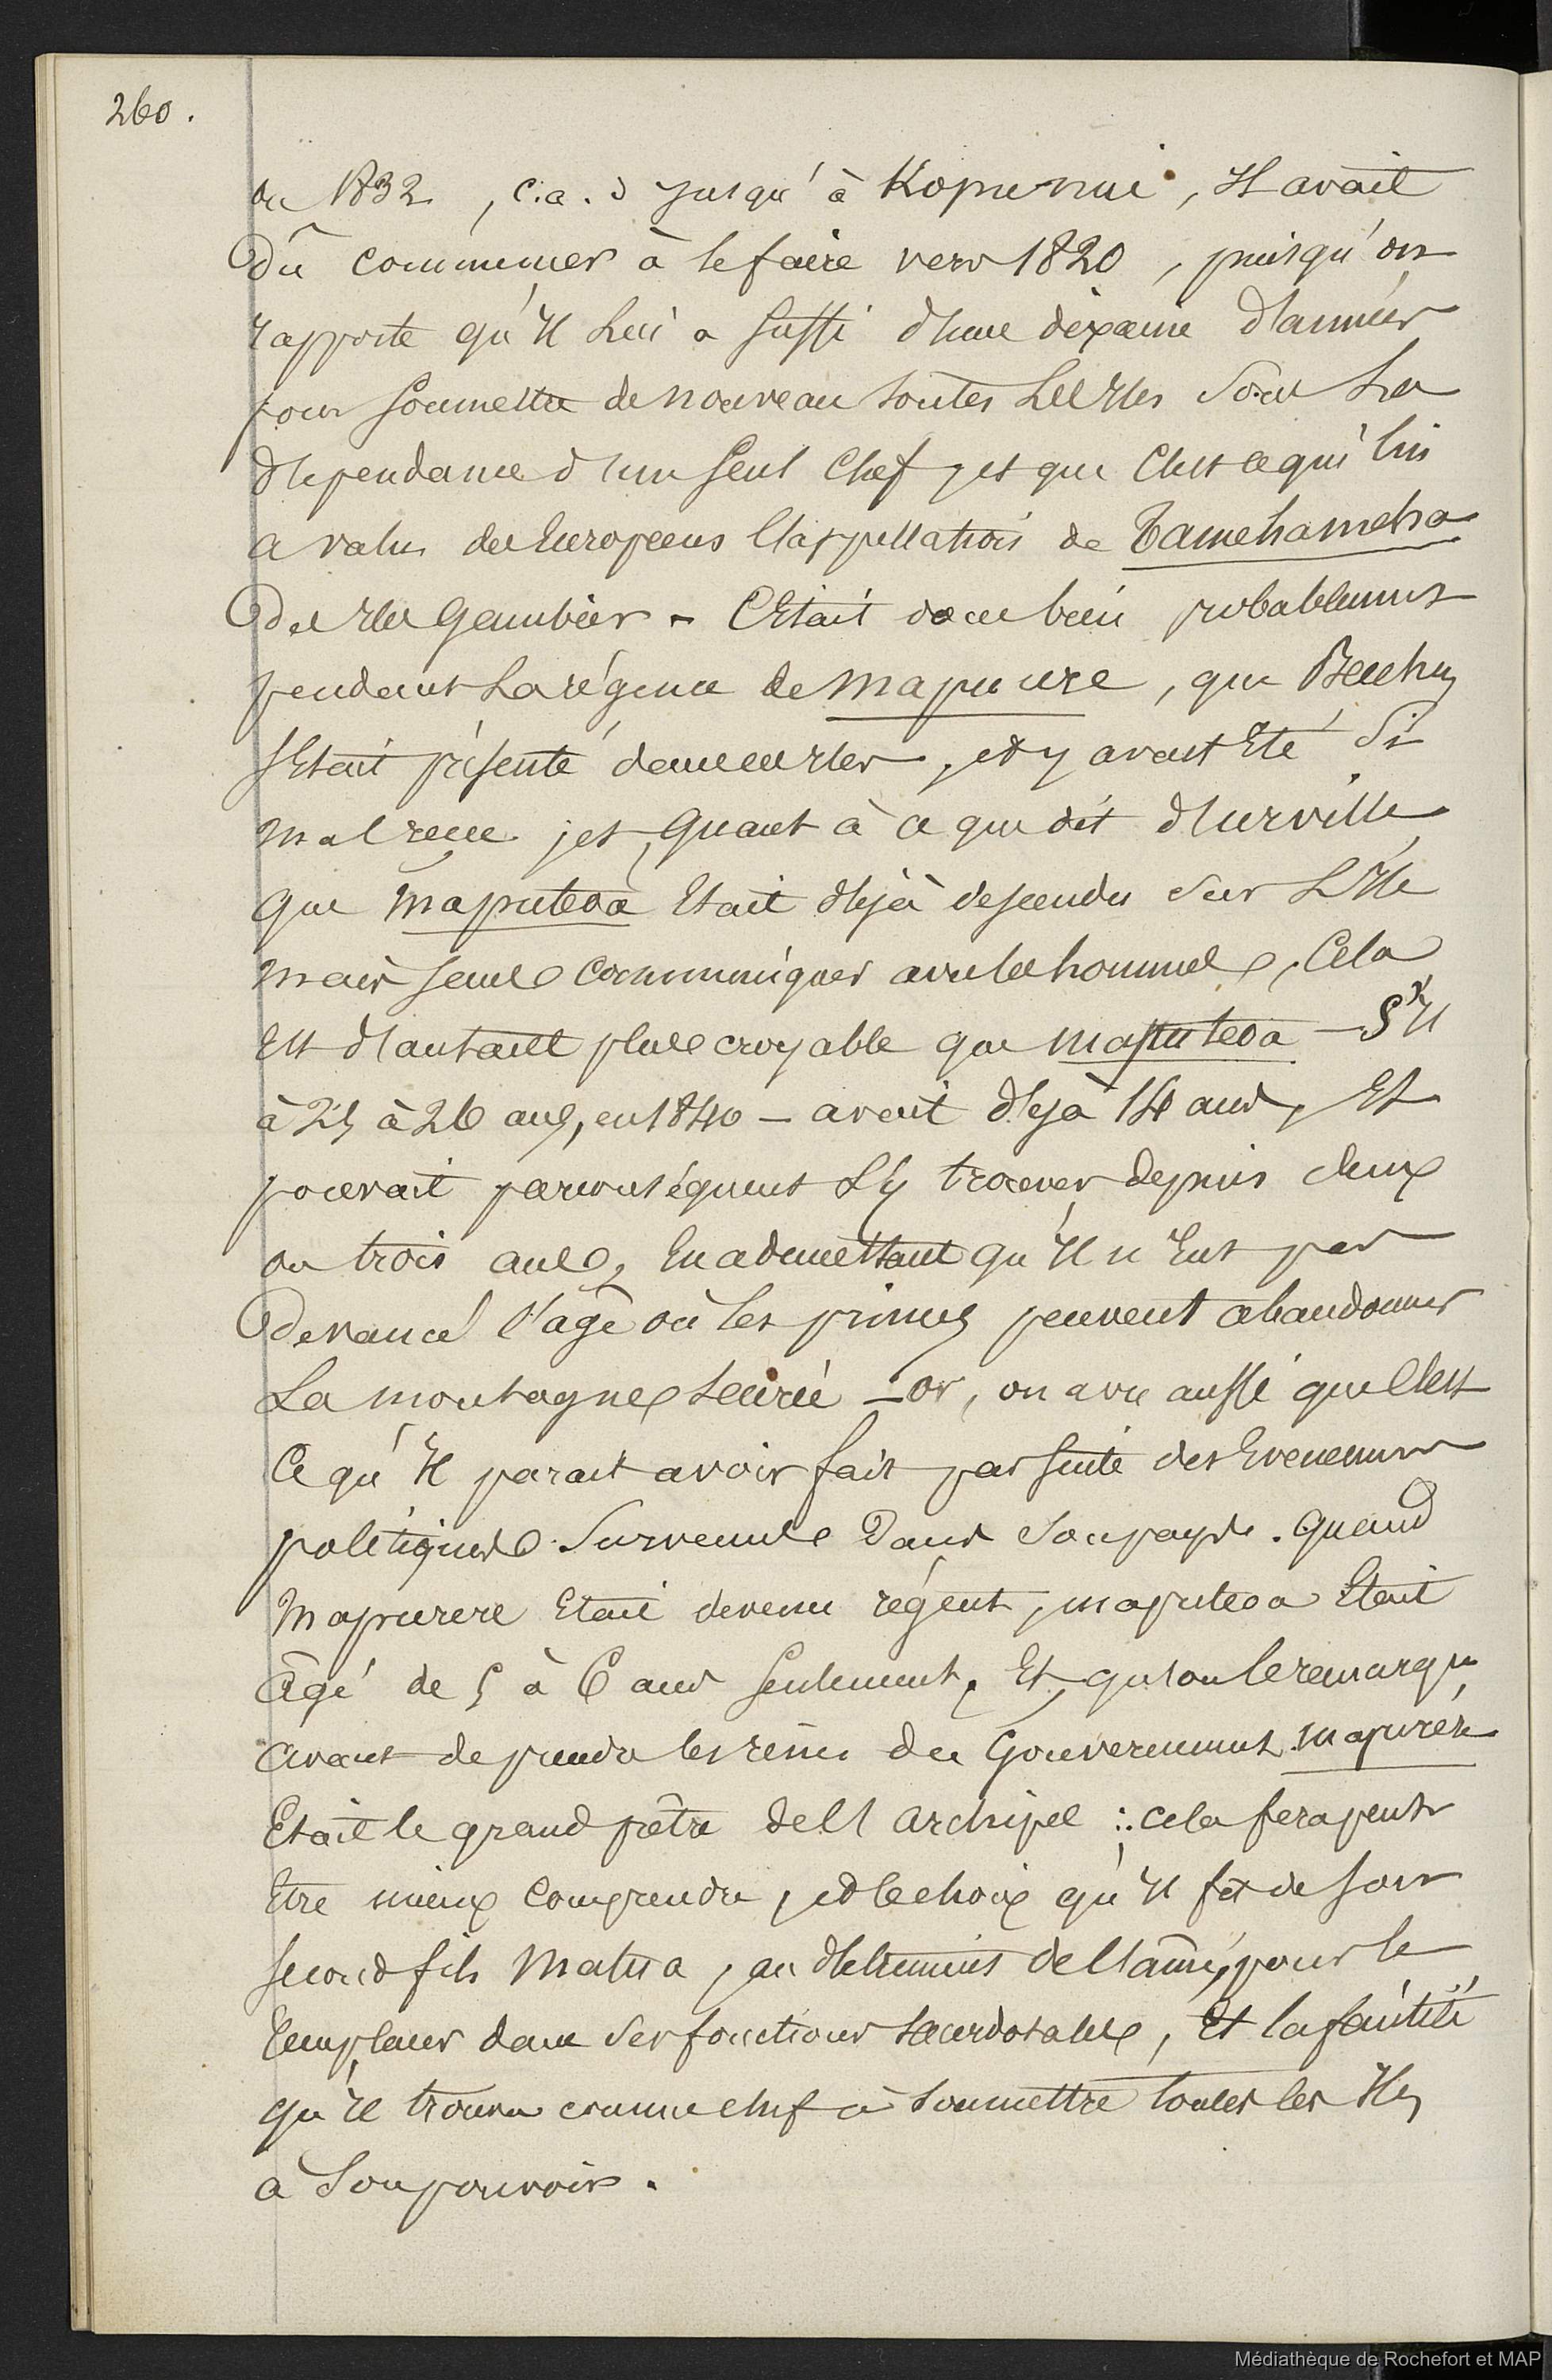 260.
ou 1832, c.a.d jusqu'à Kopunui, Il avait
dû commencer à le faire vers 1820, puisqu'on
rapporte qu'Il Lui a suffi d'une dixaine d'années
pour soumettre de nouveau toutes Les Iles sous La
dépendance d'un seul Chef, et que C'est ce qui lui
a valu des Européens l'appellation de Tamehameha
des Iles Gambier. C'Etait donc bien probablement
pendant La régence de Mapurure, que Beechey
s'Etait présenté dans ces Iles, et y avait Eté si
mal recu; et, Quant à ce que dit d'urville
que Maputeoa Etait déjà descendu sur L'Ile
mais sans communiquer avec les hommes, Cela
Est d'autant plus croyable que Maputeoa — S'Il
à 25 à 26 ans, en 1840 — avait déjà 14 ans, Et
pouvait par conséquent s'y trouver depuis deux
ou trois ans, En admettant qu'Il n'Eut pas
devancé l'âge où les princes peuvent abandonner
La montagne sacrée — or, on a vu aussi que C'est
Ce qu'Il parait avoir fait par suite des Evenements
politiques survenus dans son pays. Quand
Mapurere Etait devenu régent, maputeoa Etait
âgé de 5 à 6 ans seulement, Et, qu'on le remarque,
avant de prendre les rênes du Gouvernement mapurere
Etait le grand prêtre de l'archipel; cela fera peut
Etre mieux comprendre, et le choix qu'Il fit de son
second fils Matua, au détriment de l'aîné, pour le
remplacer dans ses fonctions sacerdotales, Et la facilité
qu'Il trouva comme chef à soumettre toutes les Iles
à son pouvoir.
Médiathèque de Rochefort et MAP